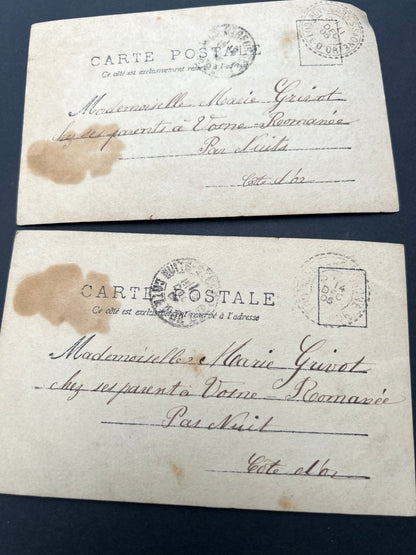 CARTE POSTALE
Ce côté est exclusivement réservé à l'adresse
Mademoiselle Marie Grivot
chez ses parents à Vosne-Romanée
Par Nuits
Côte d'or
CARTE POSTALE
Ce côté est exclusivement réservé à l'adresse
14
05
Mademoiselle Marie Grivot
chez ses parent à Vosne-Romanée
Par Nuit
Côte d'or